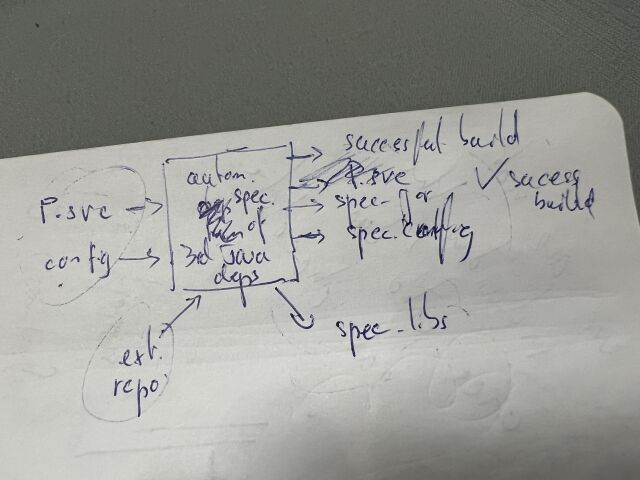 P.svc
config
ext.
repo
autom.
spec.
of
3rd Java
deps
successful build
P.svc
spec. or
spec. config
spec. libs
✓ sucess
build